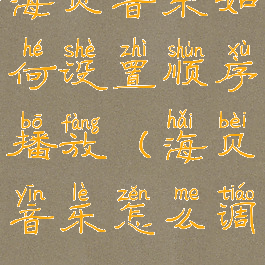 海贝音乐如
hé shè zhì shùn xù
何设置顺序
bō fàng hǎi bèi
播放（海贝
yīn lè zěn me tiáo
音乐怎么调